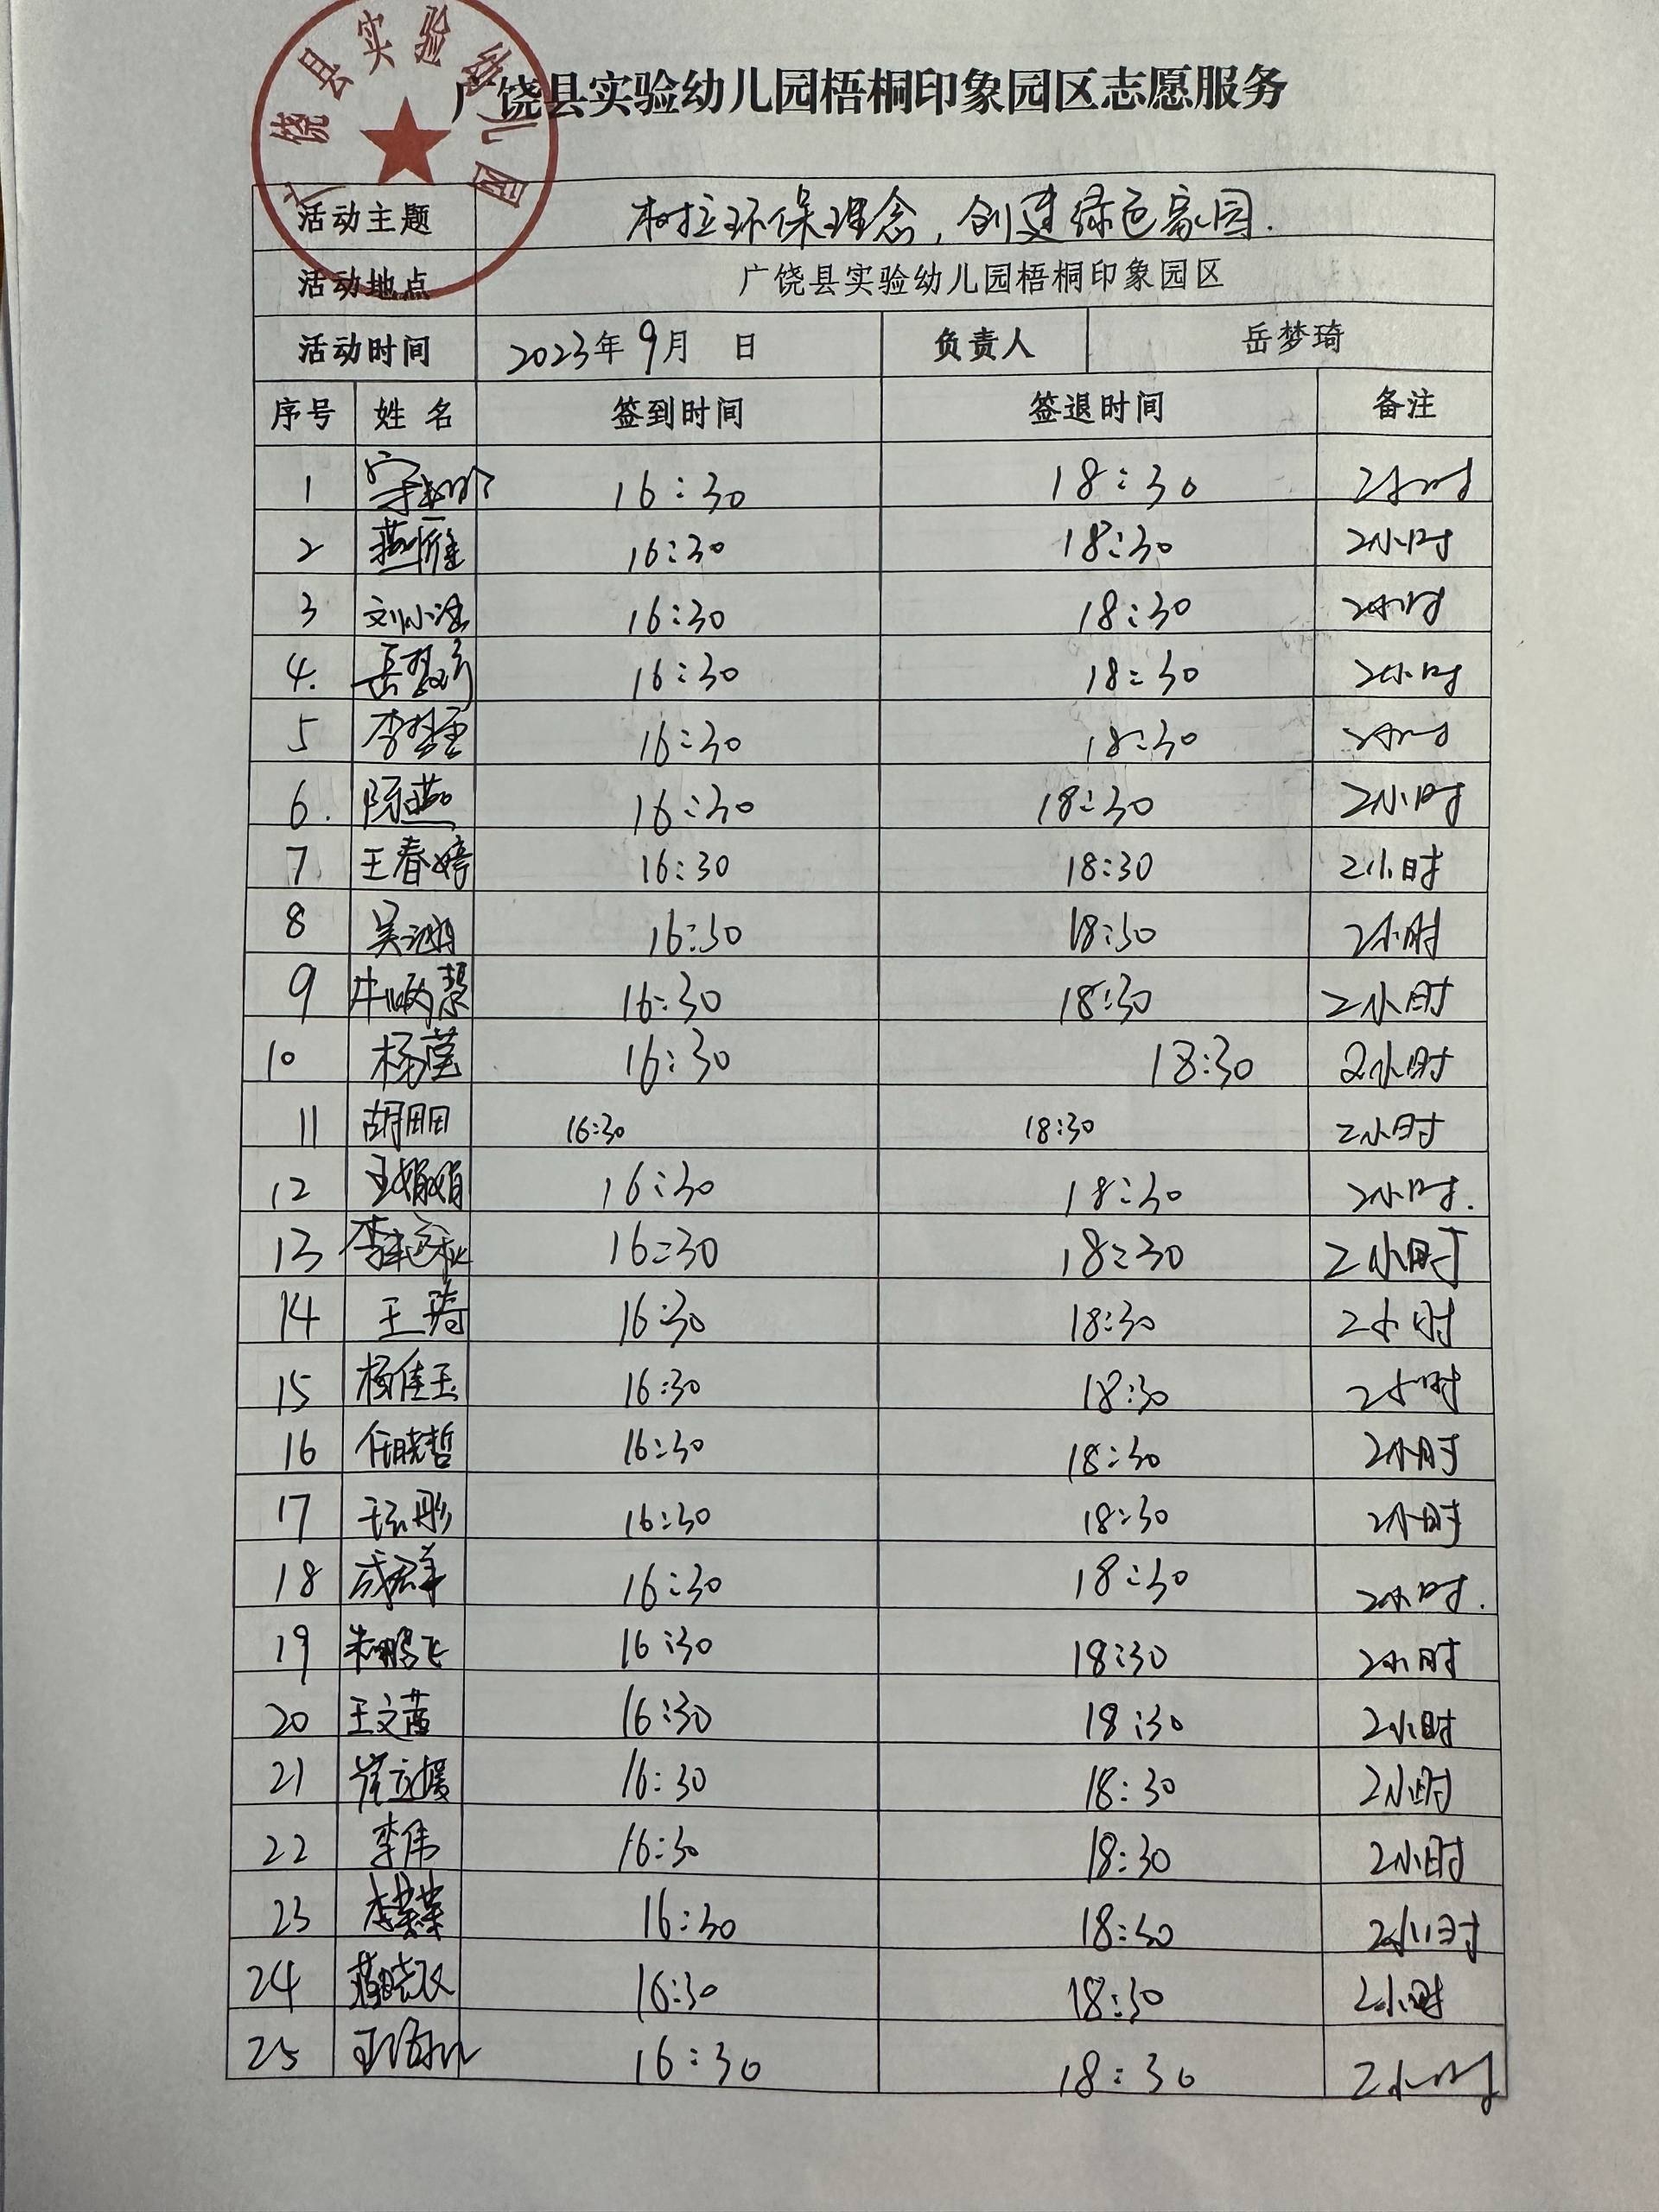 广饶县实验幼儿园
广饶县实验幼儿园梧桐印象园区志愿服务
活动主题 树立环保理念，创建绿色家园.
活动地点 广饶县实验幼儿园梧桐印象园区
活动时间 2023年9月 日 负责人 岳梦琦
序号 姓名 签到时间 签退时间 备注
1 16:30 18:30 2小时
2 燕雁 16:30 18:30 2小时
3 16:30 18:30 2小时
4. 岳梦琦 16:30 18:30 2小时
5 16:30 18:30 2小时
6. 陈燕 16:30 18:30 2小时
7 王春婷 16:30 18:30 2小时
8 16:30 18:30 2小时
9 16:30 18:30 2小时
10 杨莹 16:30 18:30 2小时
11 胡田田 16:30 18:30 2小时
12 王娟娟 16:30 18:30 2小时.
13 16:30 18:30 2小时
14 王琦 16:30 18:30 2小时
15 杨佳玉 16:30 18:30 2小时
16 任晓哲 16:30 18:30 2小时
17 16:30 18:30 2小时
18 16:30 18:30 2小时.
19 朱鹏飞 16:30 18:30 2小时
20 王文茜 16:30 18:30 2小时
21 崔立媛 16:30 18:30 2小时
22 李伟 16:30 18:30 2小时
23 李荣荣 16:30 18:30 2小时
24 16:30 18:30 2小时
25 16:30 18:30 2小时